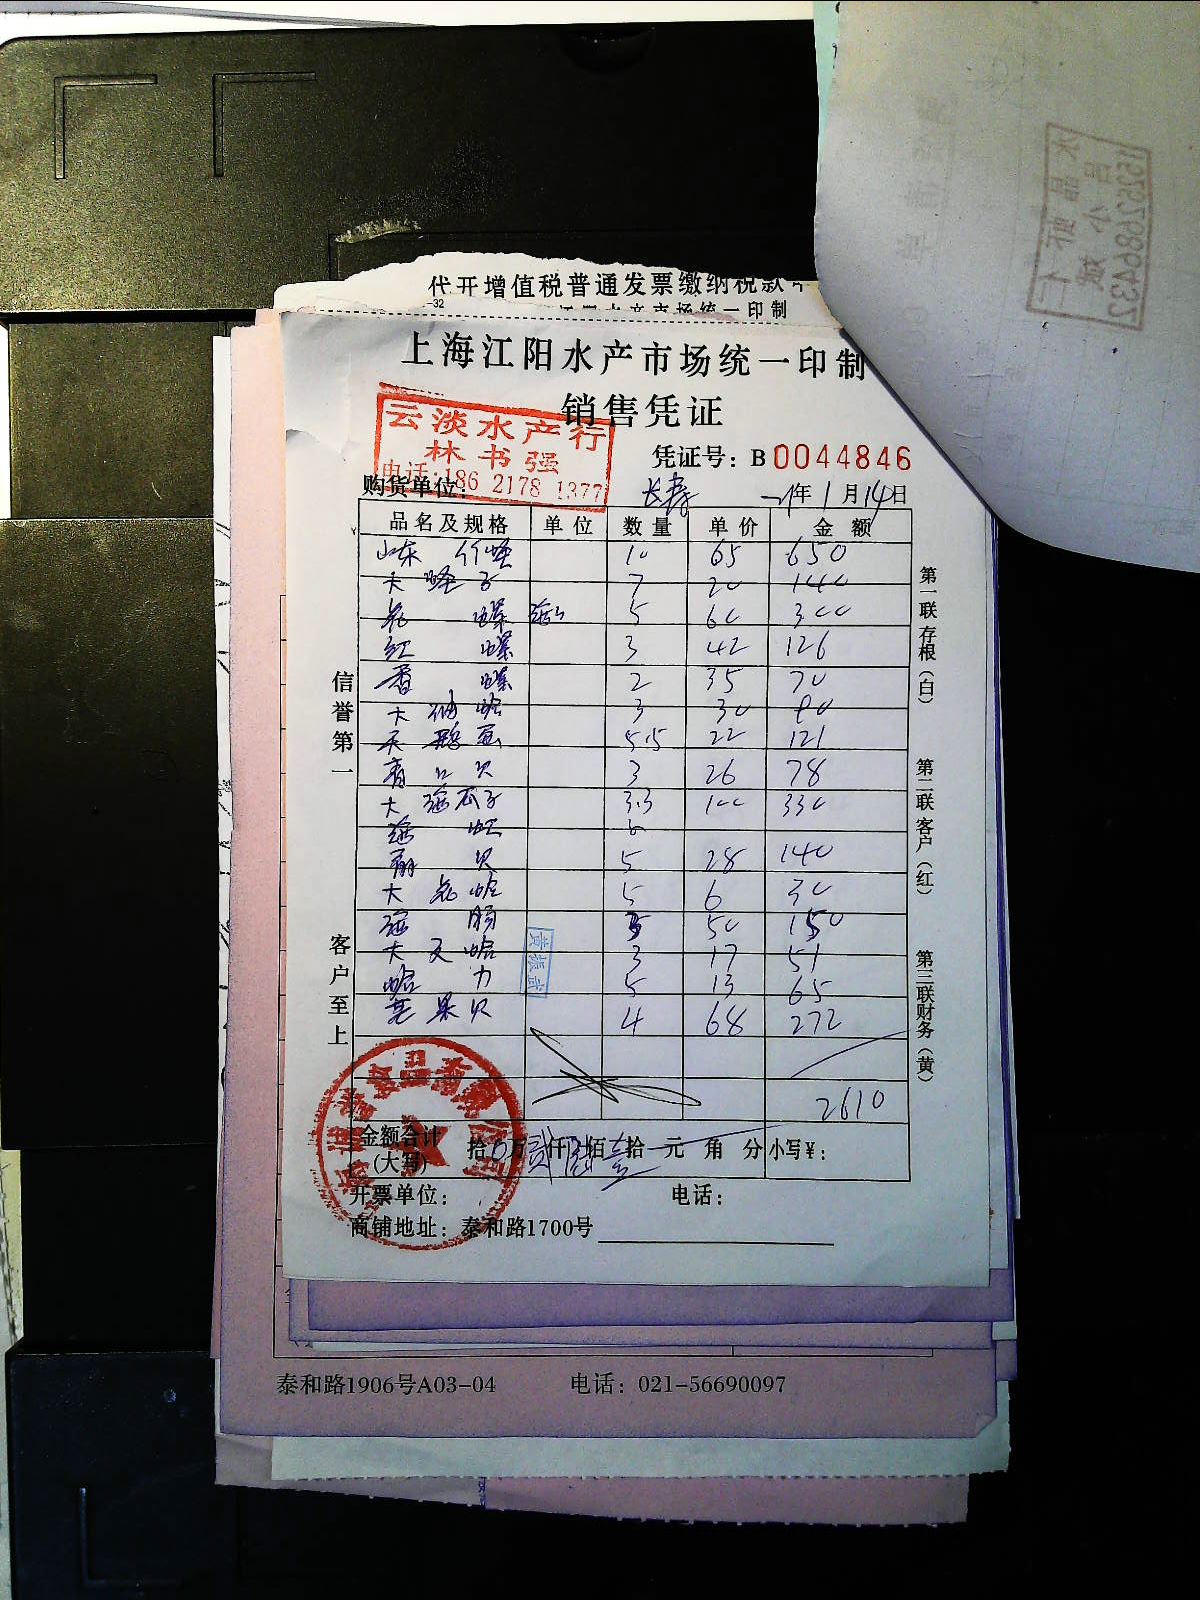 代开增值税普通发票缴纳税款
上海江阳水产市场统一印制
销售凭证
云淡水产行
林书强
电话:186 2178 1377
凭证号: B 0044846
购货单位: 长寿 年 1 月 14 日
品名及规格 单位 数量 单价 金额
山东 竹蛏 10 65 650
大 蛏子 7 20 140
花 螺 5 60 300
红 螺 3 42 126
香 螺 2 35 70
大 蛤 3 30 90
天鹅蛋 5.5 22 121
青口贝 3 26 78
大海瓜子 3.3 100 330
贝 5 28 140
大花蛤 5 6 30
海肠 3 50 150
大文蛤 3 17 51
蛤 5 13 65
芒果贝 4 68 272
2610
金额合计
(大写)
拾0万贰仟陆佰壹拾 元 角 分 小写¥:
开票单位: 电话:
商铺地址: 泰和路1700号
信誉第一
客户至上
第一联存根(白)
第二联客户(红)
第三联财务(黄)
泰和路1906号A03-04 电话: 021-56690097